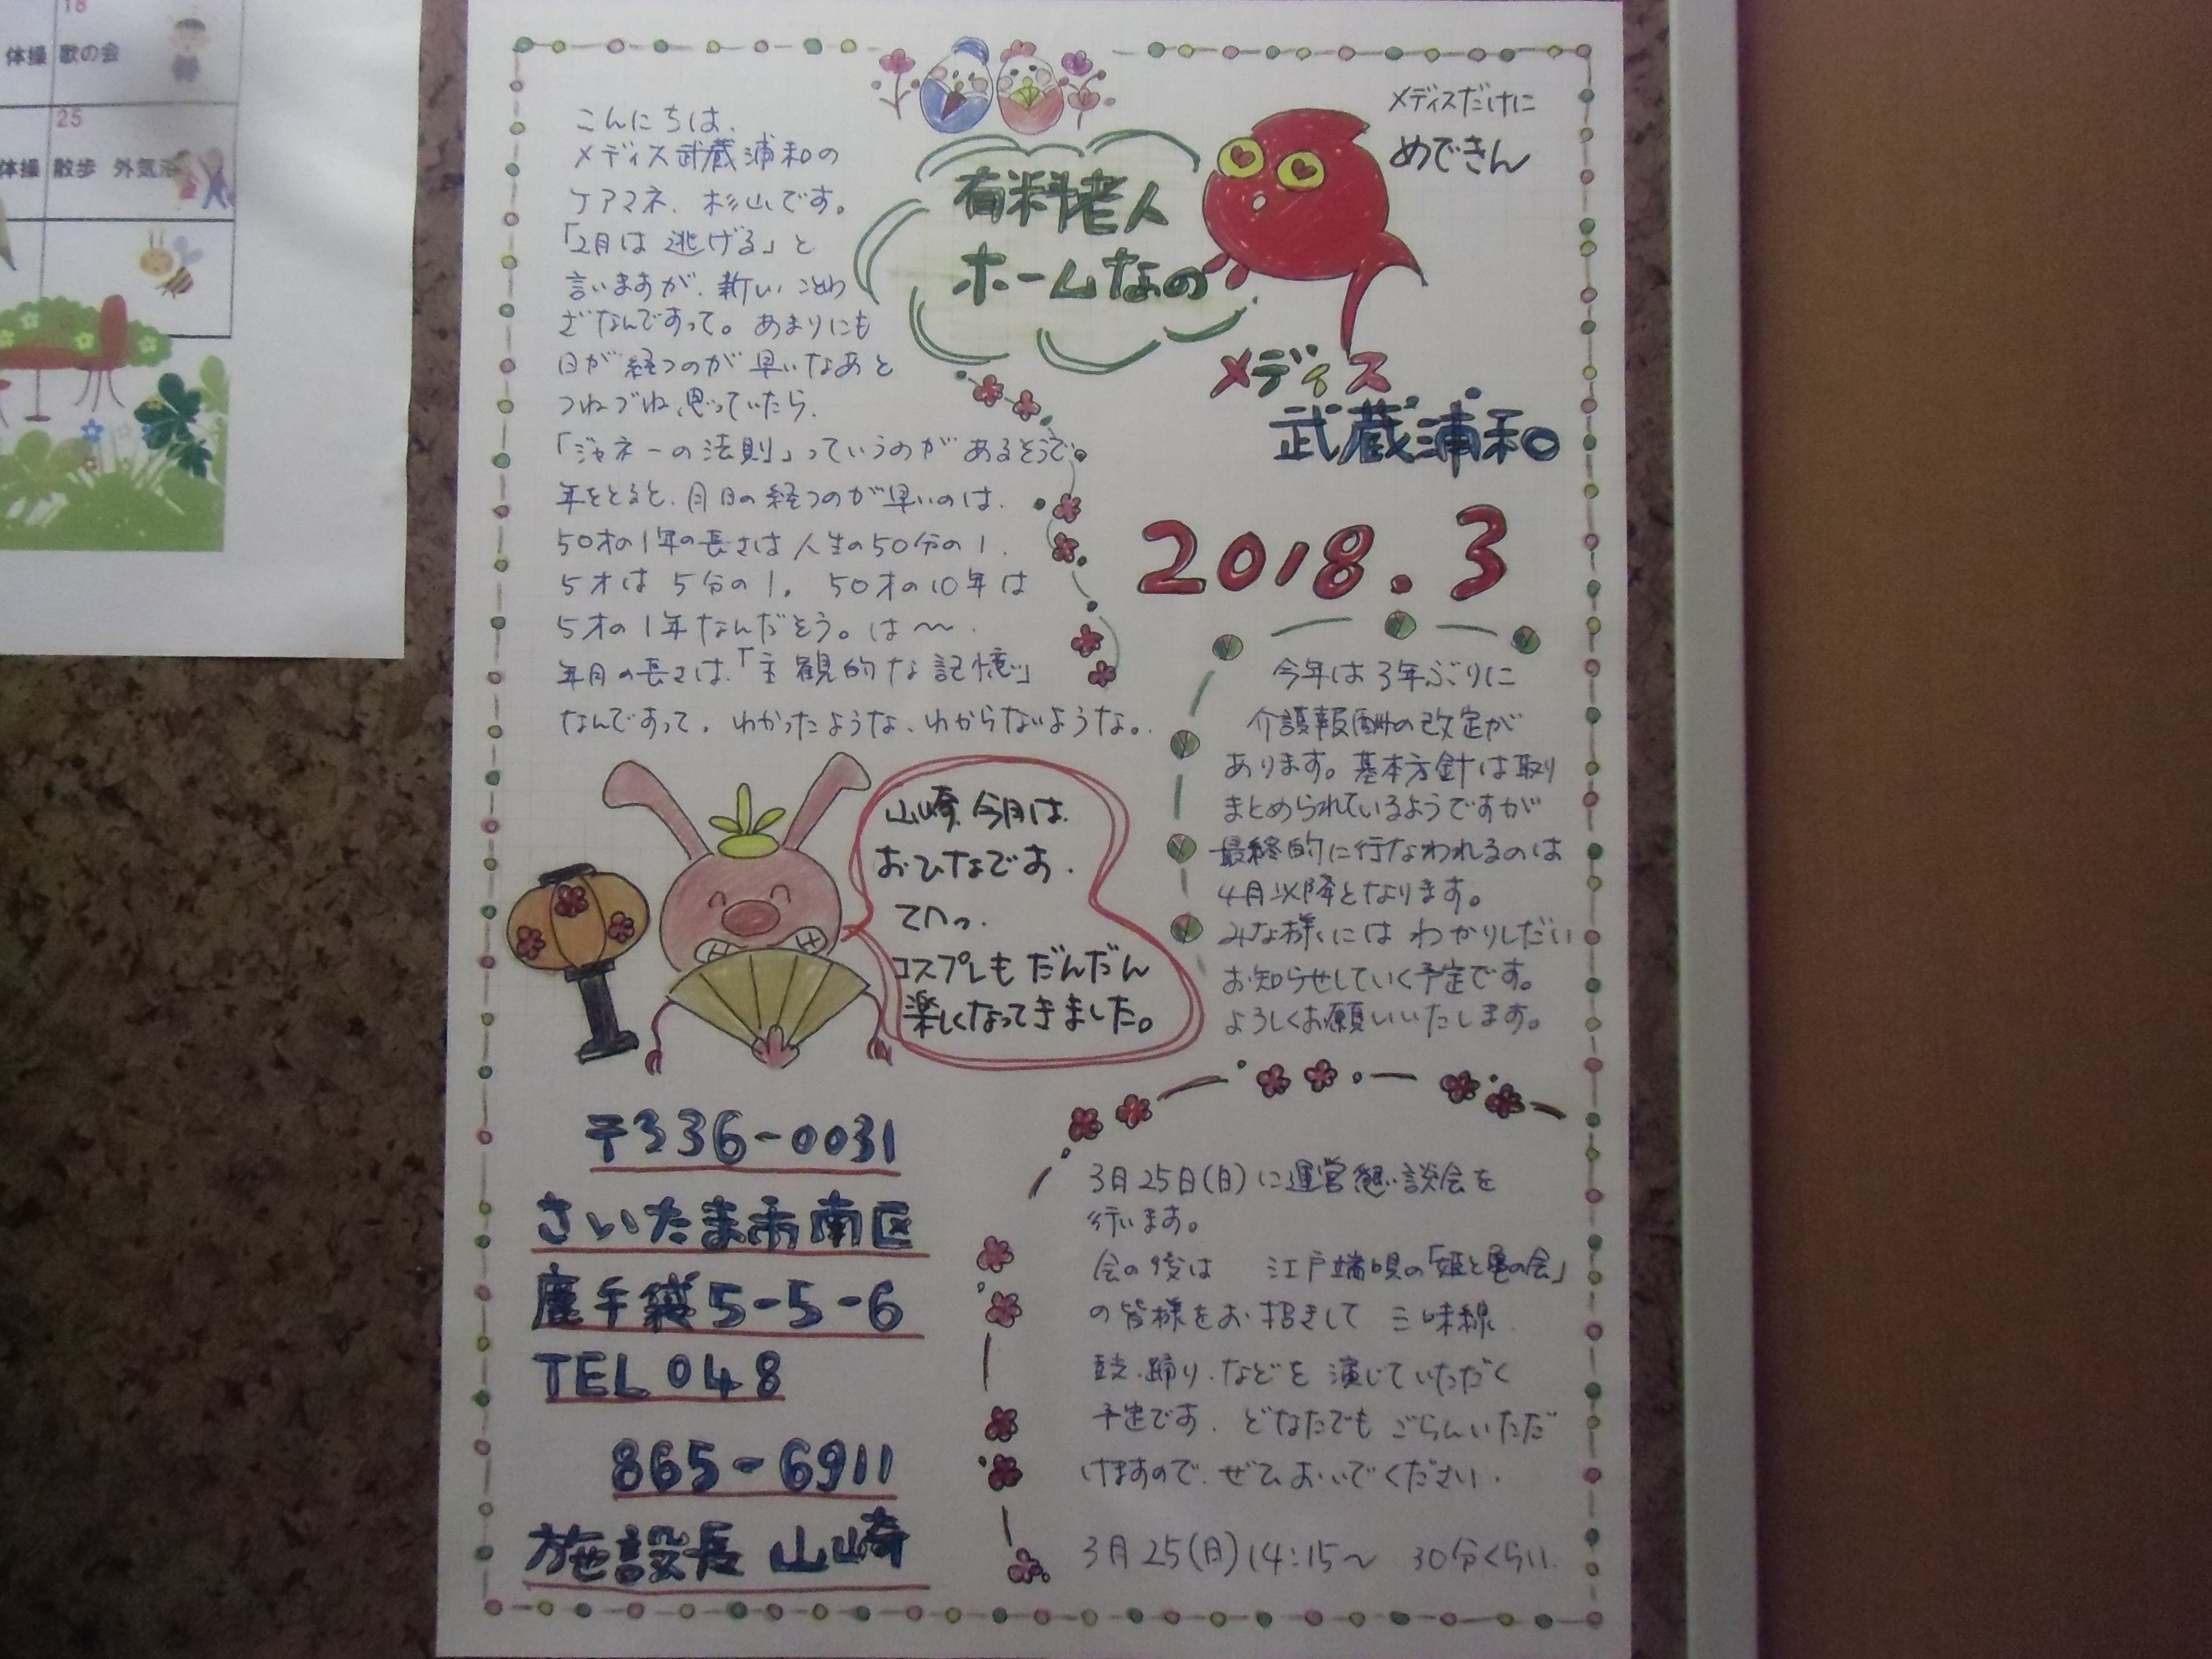 18
体操 歌の会
25
体操 散歩 外気浴
こんにちは、
メディス武蔵浦和の
ケアマネ、杉山です。
「2月は逃げる」と
言いますが、新しいことわ
ざなんですって。あまりにも
日が経つのが早いなあと
つねづね思っていたら、
「ジャネーの法則」っていうのがあるそうで。
年をとると、月日の経つのが早いのは、
50才の1年の長さは人生の50分の1.
5才は5分の1。50才の10年は
5才の1年なんだそう。は〜.
年月の長さは、「主観的な記憶」
なんですって。わかったような、わからないような。
有料老人
ホームなの
メディスだけに
めできん
メディス
武蔵浦和
2018.3
今年は3年ぶりに
介護報酬の改定が
あります。基本方針は取り
まとめられているようですが
最終的に行なわれるのは
4月以降となります。
みな様にはわかりしだい
お知らせしていく予定です。
よろしくお願いいたします。
山崎、今月は、
おひなです.
てへっ.
コスプレもだんだん
楽しくなってきました。
〒336-0031
さいたま市南区
鹿手袋5-5-6
TEL 048
865-6911
施設長 山崎
3月25日(日)に運営懇談会を
行います。
会の後は 江戸端唄の「姫と亀の会」
の皆様をお招きして 三味線
鼓、踊り、などを演じていただく
予定です。どなたでもごらんいただ
けますので、ぜひおいでください.
3月25(日)14:15〜 30分くらい.